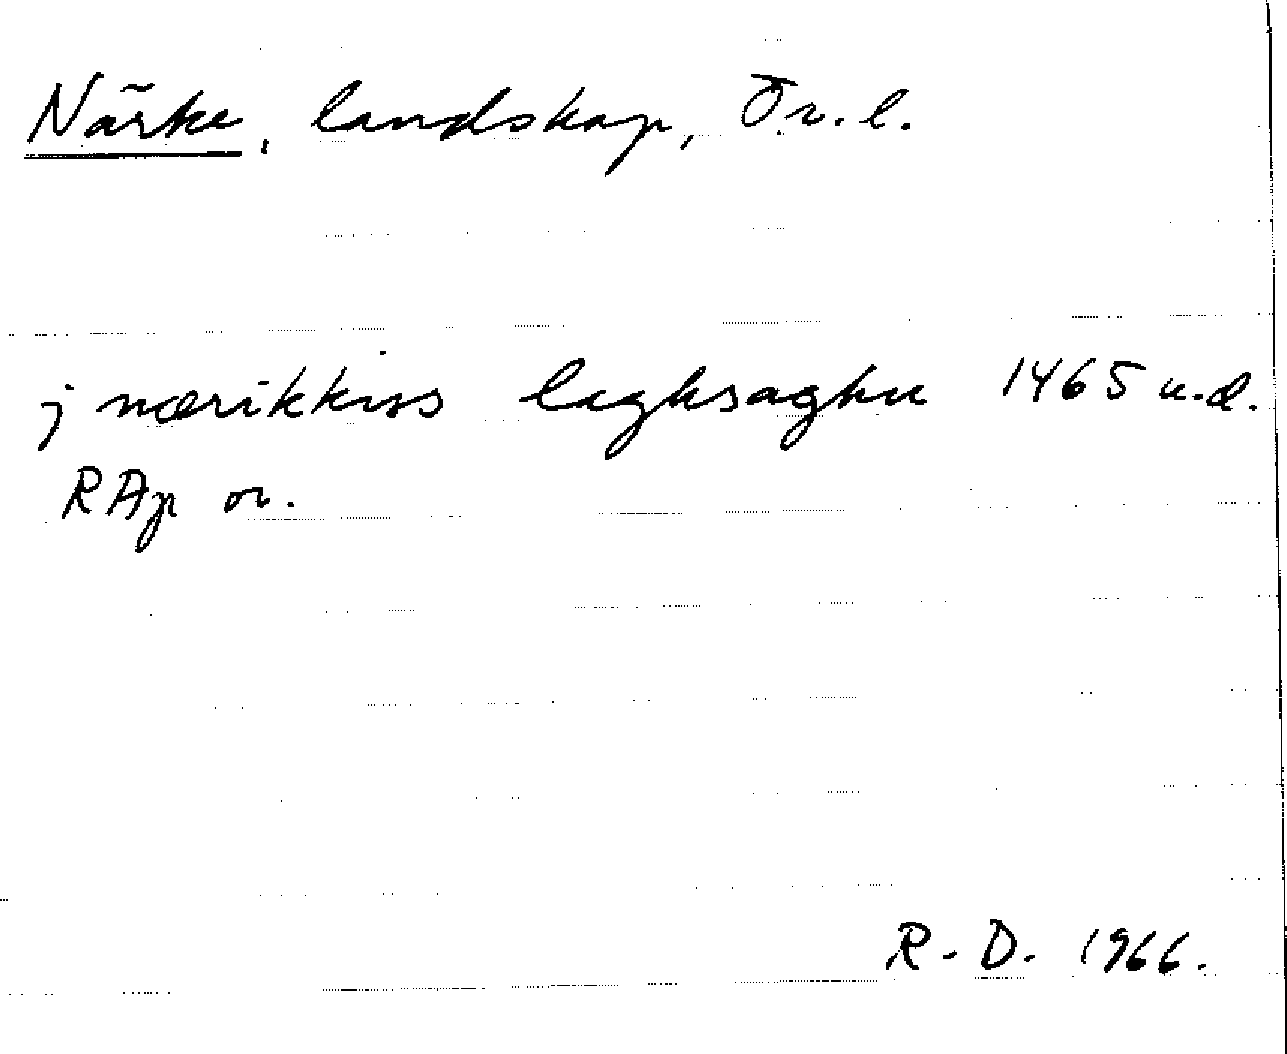 Närke, landskap, Ör. l.
j nærikkiss laghsaghu 1465 u.d.
RAp or.
R-D. 1966.